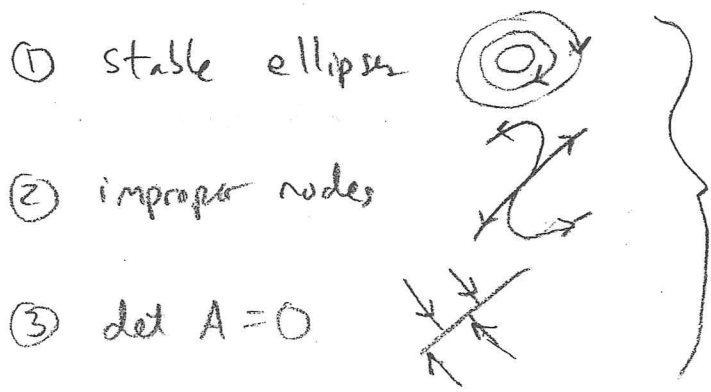 ① stable ellipses
② improper nodes
③ det A = 0